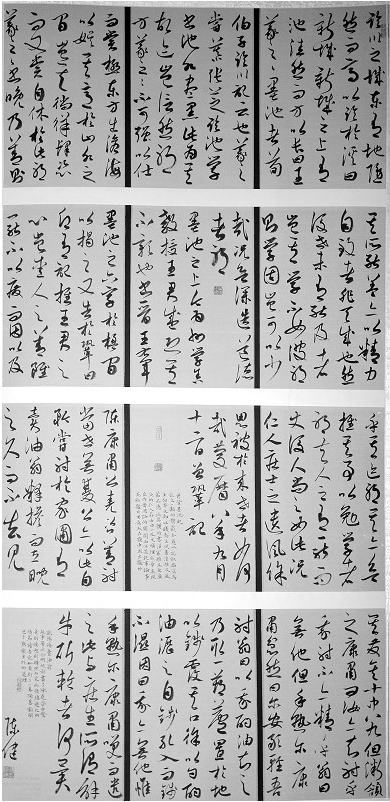 臨川之城東有地隱
然而高以臨於溪曰
新城新城之上有
池洼然而方以長曰王
羲之之墨池者荀
伯子臨川記云也羲之
嘗慕張芝臨池學
書池水盡黑此為其
故跡豈信然邪
方羲之之不可強以仕
而嘗極東方出滄海
以娛其意於山水之
間豈其徜徉肆恣
而又嘗自休於此邪
羲之之書晚乃善則
其所能蓋以精力
自致者非天成也然
後世未有能及者
豈其學不如彼邪
則學固豈可以少
哉況欲深造道德
者邪
墨池之上今為州學舍
教授王君盛恐其
不彰也書晉王右軍
墨池之六字於楹間
以揭之又告於鞏曰
願有記推王君之
心豈愛人之善雖
一能不以廢而因以及
乎其跡邪其亦欲
推其事以勉學者
邪夫人之有一能而使
後人尚之如此況
仁人莊士之遺風餘
思被於來世者如何
哉慶曆八年九月
十二日曾鞏記
陳康肅公堯咨善射
當世無雙公亦以此自
矜嘗射於家圃有
賣油翁釋擔而立睨
之久而不去見
其發矢十中八九但微頷
之康肅問曰汝亦知射乎
吾射不亦精乎翁曰
無他但手熟爾康
肅忿然曰爾安敢輕吾
射翁曰以我酌油知之
乃取一葫蘆置於地
以錢覆其口徐以杓酌
油瀝之自錢孔入而錢
不濕因曰我亦無他惟
手熟爾康肅笑而遣
之此與莊生所謂解
牛斫輪者何異